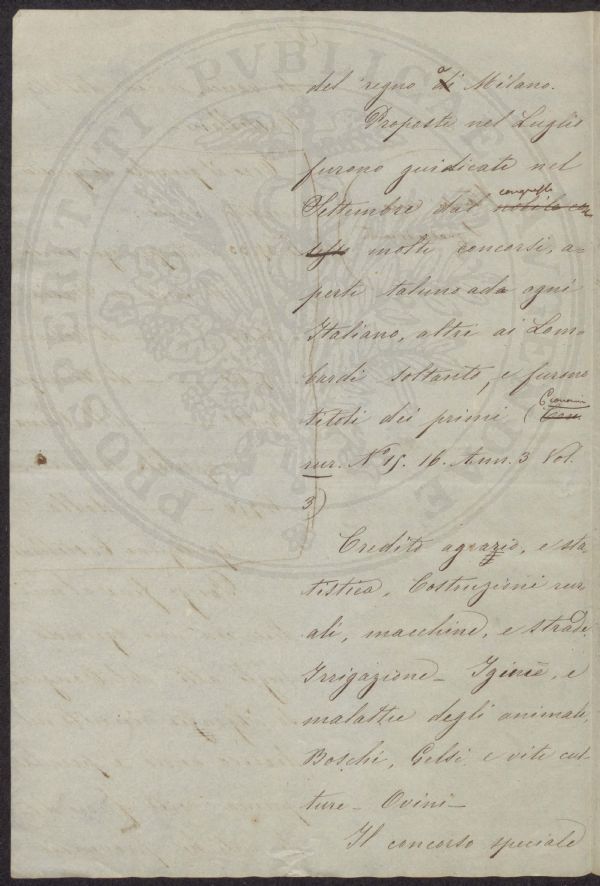 del regno a Milano.
Proposti nel Luglio
furono guidicati nel
Settembre dal congresso
molti concorsi, a-
perti taluno ada ogni
Italiano, altri ai Lom-
bardi soltanto, e furono
titoli dei primi (Econom.
rur. N.º 15. 16. Ann. 3 Vol.
3)
Credito agrario, e sta-
tistica, Costruzioni rur
ali, macchine, e strade
Irrigazione - Iginie, e
malattie degli animali,
Boschi, Gelsi e viti cul
ture - Ovini -
Il concorso speciale
PROSPERITATI PVBLICAE